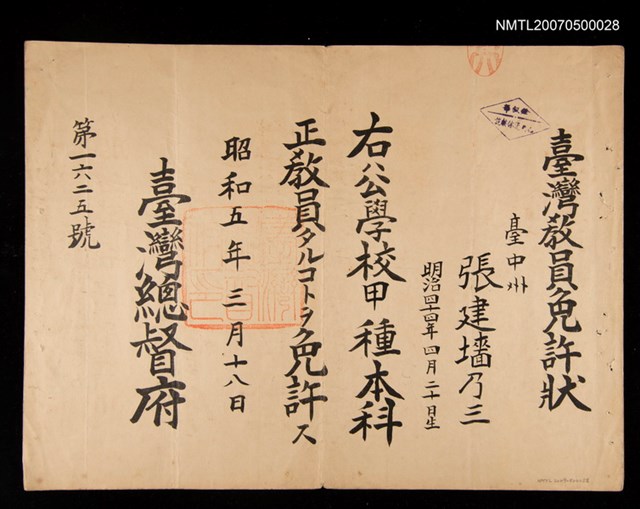 NMTL20070500028
臺灣教員免許狀
臺中州
張建墻乃三
明治四十四年四月二十日生
右公學校甲種本科
正教員タルコトヲ免許ス
昭和五年三月十八日
臺灣總督府
第一六二五號